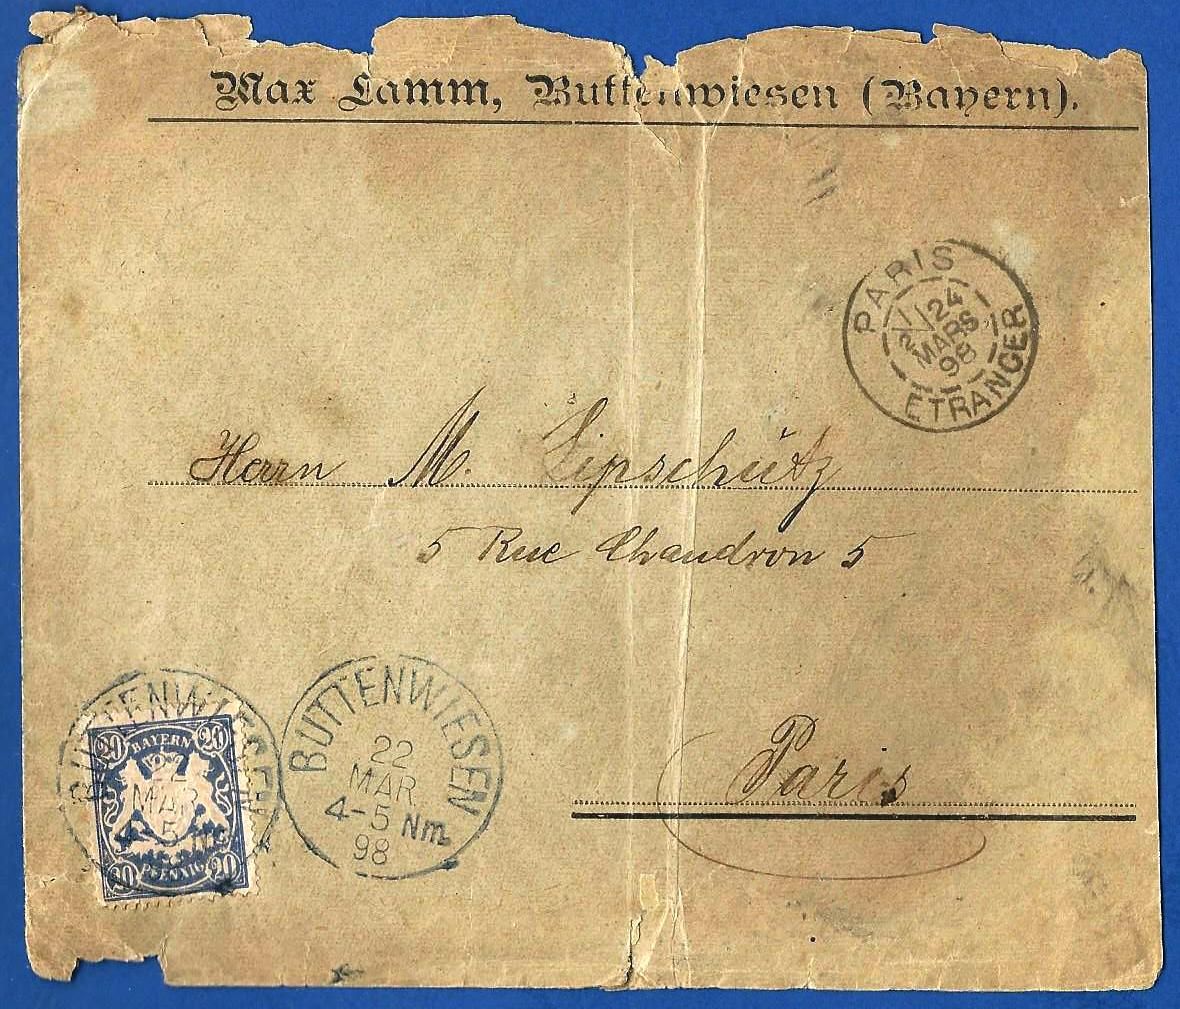 Max Lamm, Buttenwiesen (Bayern).
PARIS
24
MARS
98
ETRANGER
Herrn M. Lipschütz
5 Rue Chaudron 5
Paris
BUTTENWIESEN
22
MAR
4-5 Nm
98
BUTTENWIESEN
MAR
20 20
BAYERN
PFENNIG
20 20